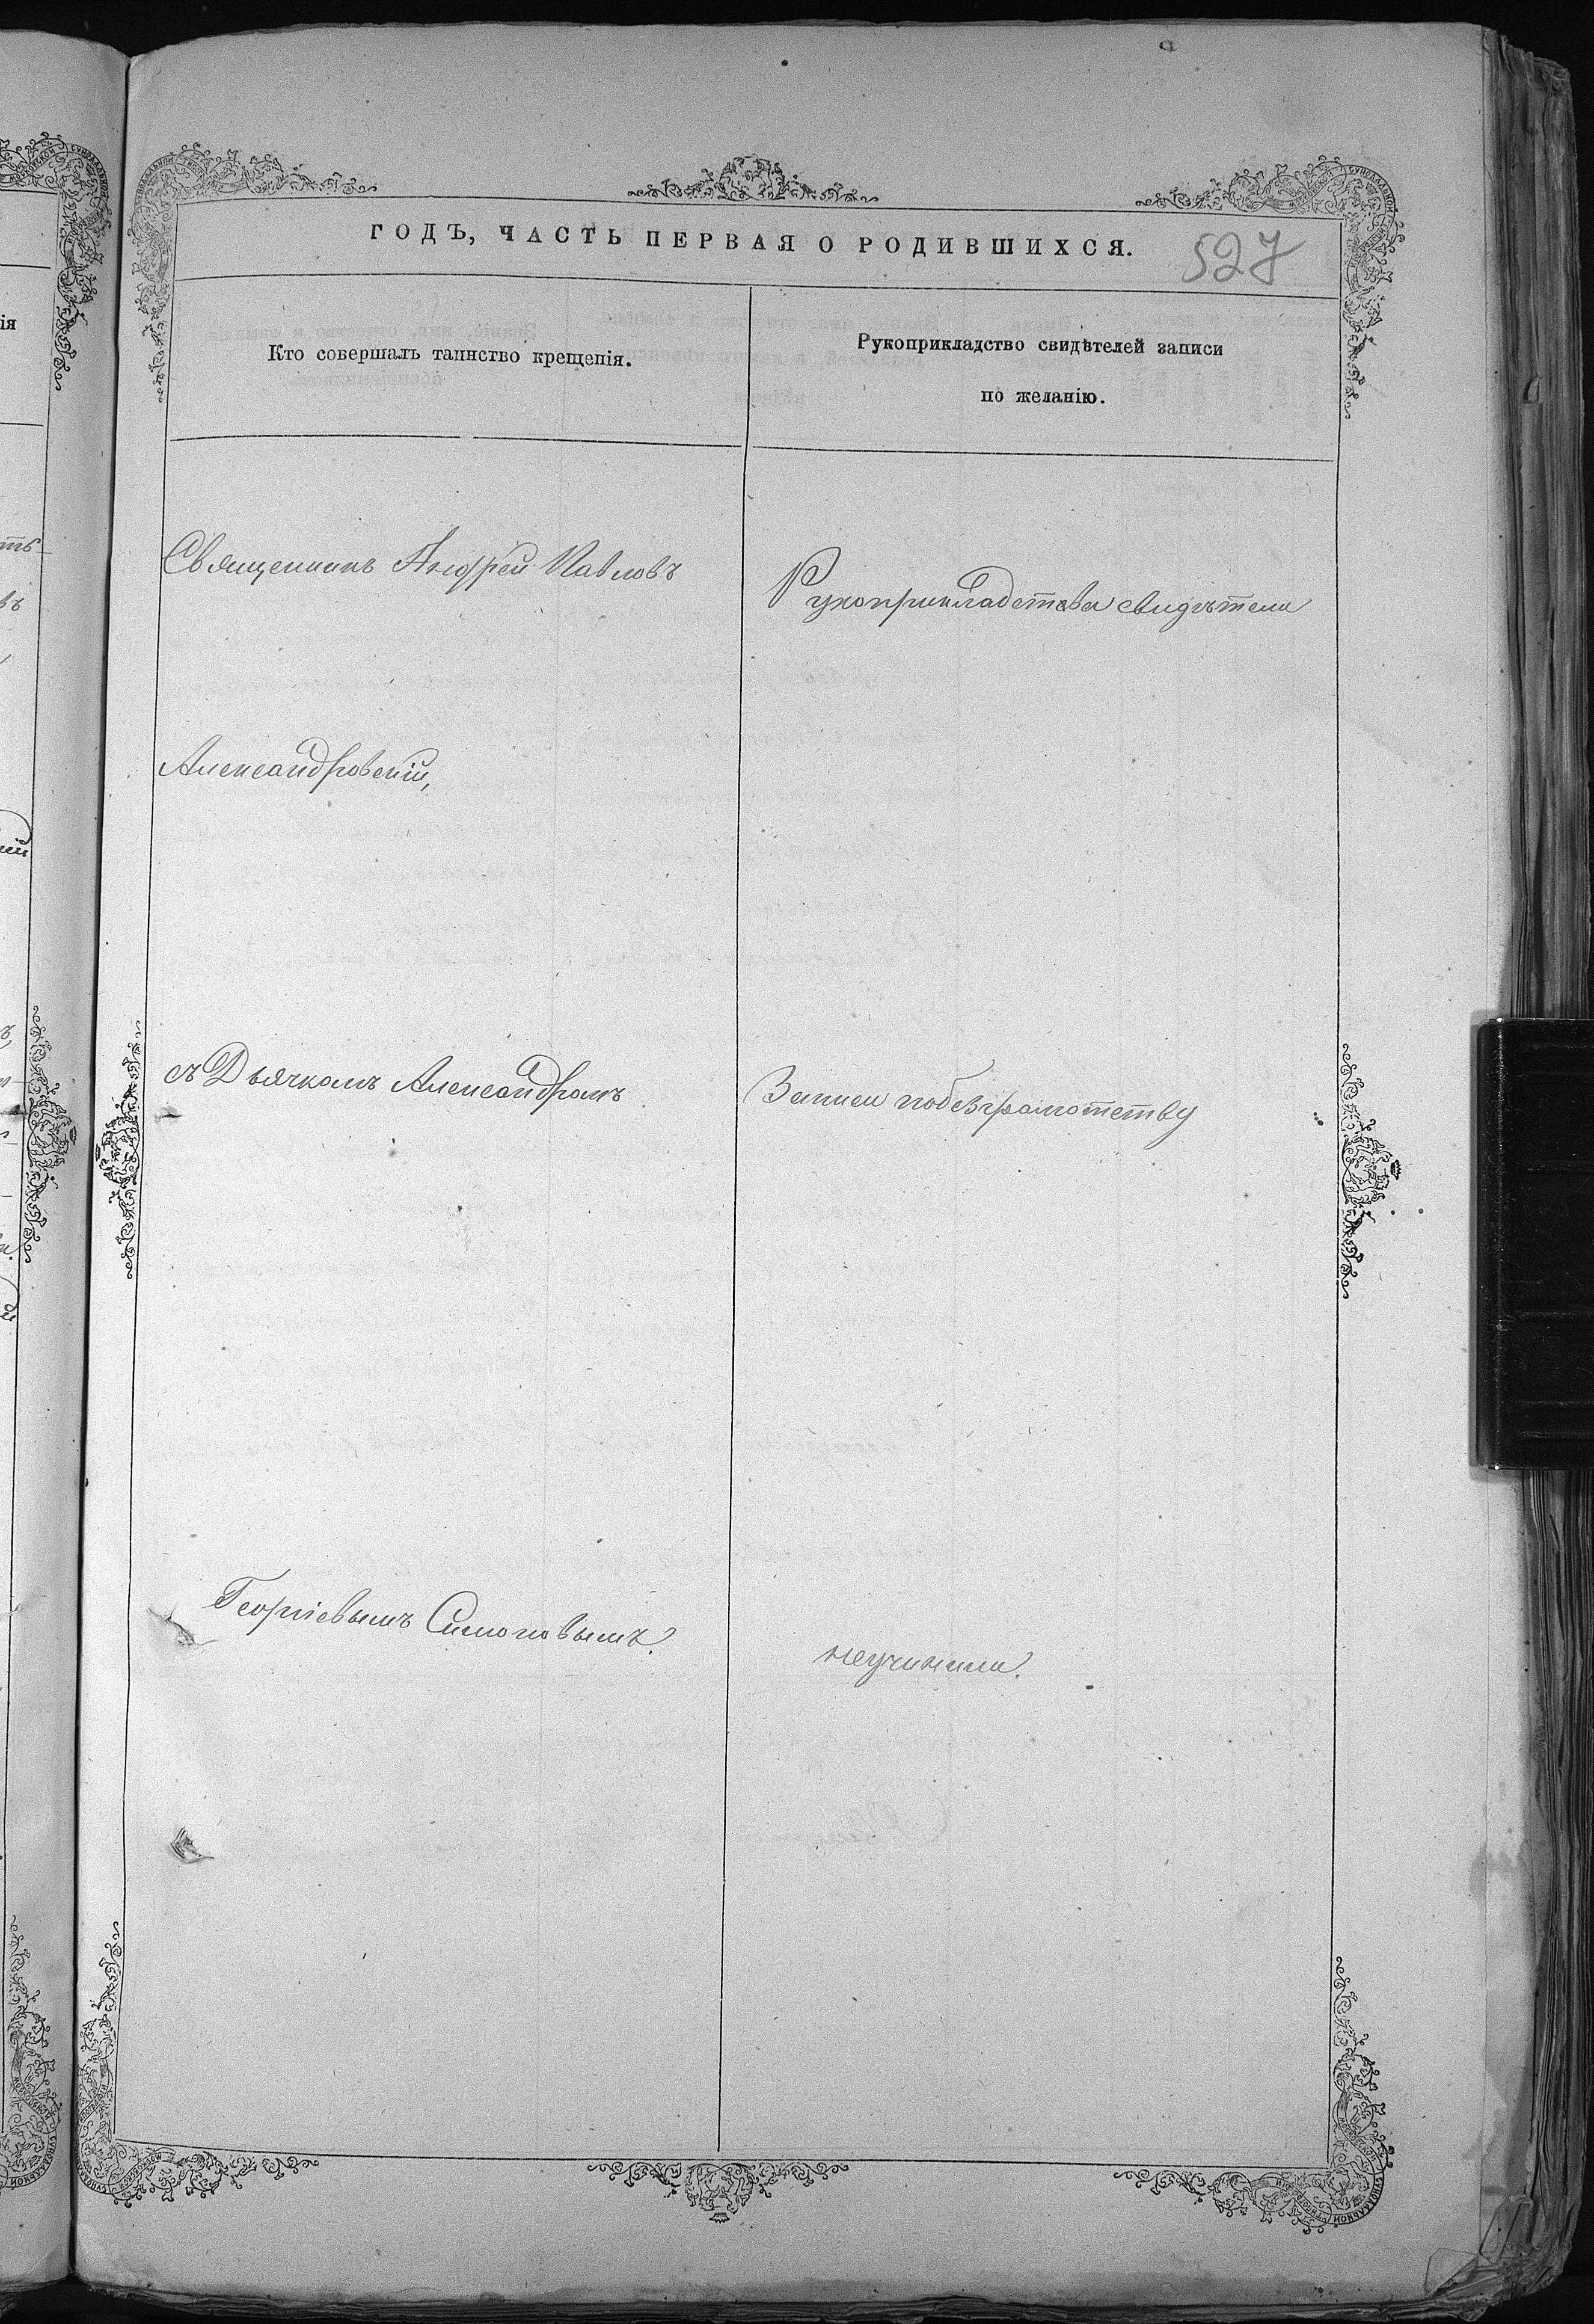 ГОДЪ, ЧАСТЬ ПЕРВАЯ О РОДИВШИХСЯ.
527
Кто совершалъ таинство крещенія.
Рукоприкладство свидѣтелей записи
по желанію.
Священникъ Андрей Павловъ
Александровскій,
съ Дьячкомъ Александромъ
Георгіевымъ Симоновымъ.
Рукоприкладства свидѣтели
Записи по безграмотству
неучинили.